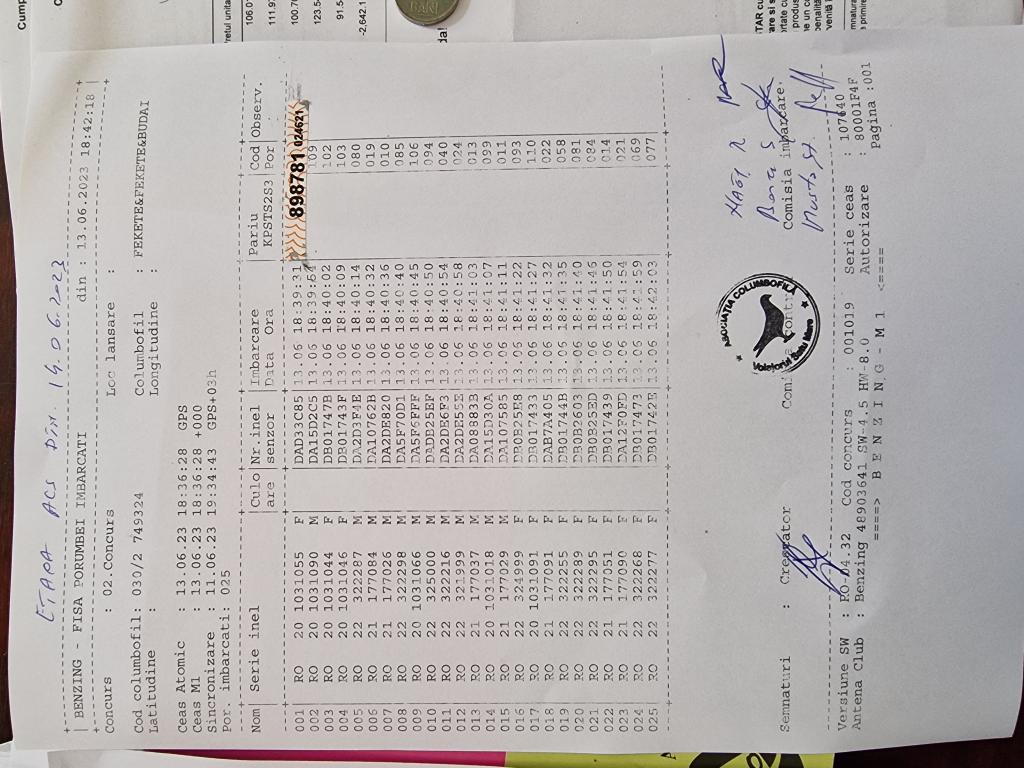 ETAPA ACS DIN. 14.06.2023
BENZING - FISA PORUMBEI IMBARCATI din : 13.06.2023 18:42:18
Concurs : 02.Concurs Loc lansare :
Cod columbofil: 030/2 749324 Columbofil : FEKETE&FEKETE&BUDAI
Latitudine : Longitudine :
Ceas Atomic : 13.06.23 18:36:28 GPS
Ceas M1 : 13.06.23 18:36:28 +000
Sincronizare : 11.06.23 19:34:43 GPS+03h
Por. imbarcati: 025
Nom Serie inel Culo Nr.inel Imbarcare Pariu Cod Observ.
are senzor Data Ora KPSTS2S3 Por
898781 024621
001 RO 20 1031055 F DAD33C85 13.06 18:39:31
002 RO 20 1031090 M DA15D2C5 13.06 18:39:54 109
003 RO 20 1031044 F DB01747B 13.06 18:40:02 102
004 RO 20 1031046 F DB01743F 13.06 18:40:09 103
005 RO 22 322287 M DA2D3F4E 13.06 18:40:14 080
006 RO 21 177084 M DA10762B 13.06 18:40:32 019
007 RO 21 177026 M DA2DE820 13.06 18:40:36 010
008 RO 22 322298 M DA5F70D1 13.06 18:40:40 085
009 RO 20 1031066 M DA5F6FFF 13.06 18:40:45 106
010 RO 22 325000 M DADB25EF 13.06 18:40:50 094
011 RO 22 322216 M DA2DE6F3 13.06 18:40:54 040
012 RO 22 321999 M DA2DE55E 13.06 18:40:58 024
013 RO 21 177037 M DA08883B 13.06 18:41:03 013
014 RO 20 1031018 M DA15D30A 13.06 18:41:07 099
015 RO 21 177029 M DA107585 13.06 18:41:11 011
016 RO 22 324999 F DB0B25E8 13.06 18:41:22 093
017 RO 20 1031091 F DB017433 13.06 18:41:27 110
018 RO 21 177091 F DAB7A405 13.06 18:41:32 022
019 RO 22 322255 F DB01744B 13.06 18:41:35 058
020 RO 22 322289 F DB0B2603 13.06 18:41:40 081
021 RO 22 322295 F DB0B25ED 13.06 18:41:46 084
022 RO 21 177051 F DB017439 13.06 18:41:50 014
023 RO 21 177090 F DA12F0FD 13.06 18:41:54 021
024 RO 22 322268 F DB017473 13.06 18:41:59 069
025 RO 22 322277 F DB01742E 13.06 18:42:03 077
ASOCIAȚIA COLUMBOFILĂ
Voiajorul Satu Mare
Semnaturi : Crescator Comisia imbarcare.
Versiune SW : RO-04.32 Cod concurs : 001019 Serie ceas : 107640
Antena Club : Benzing 48903641 SW-4.5 HW-8.0 Autorizare : 80001F4F
====> B E N Z I N G - M 1 <==== Pagina :001